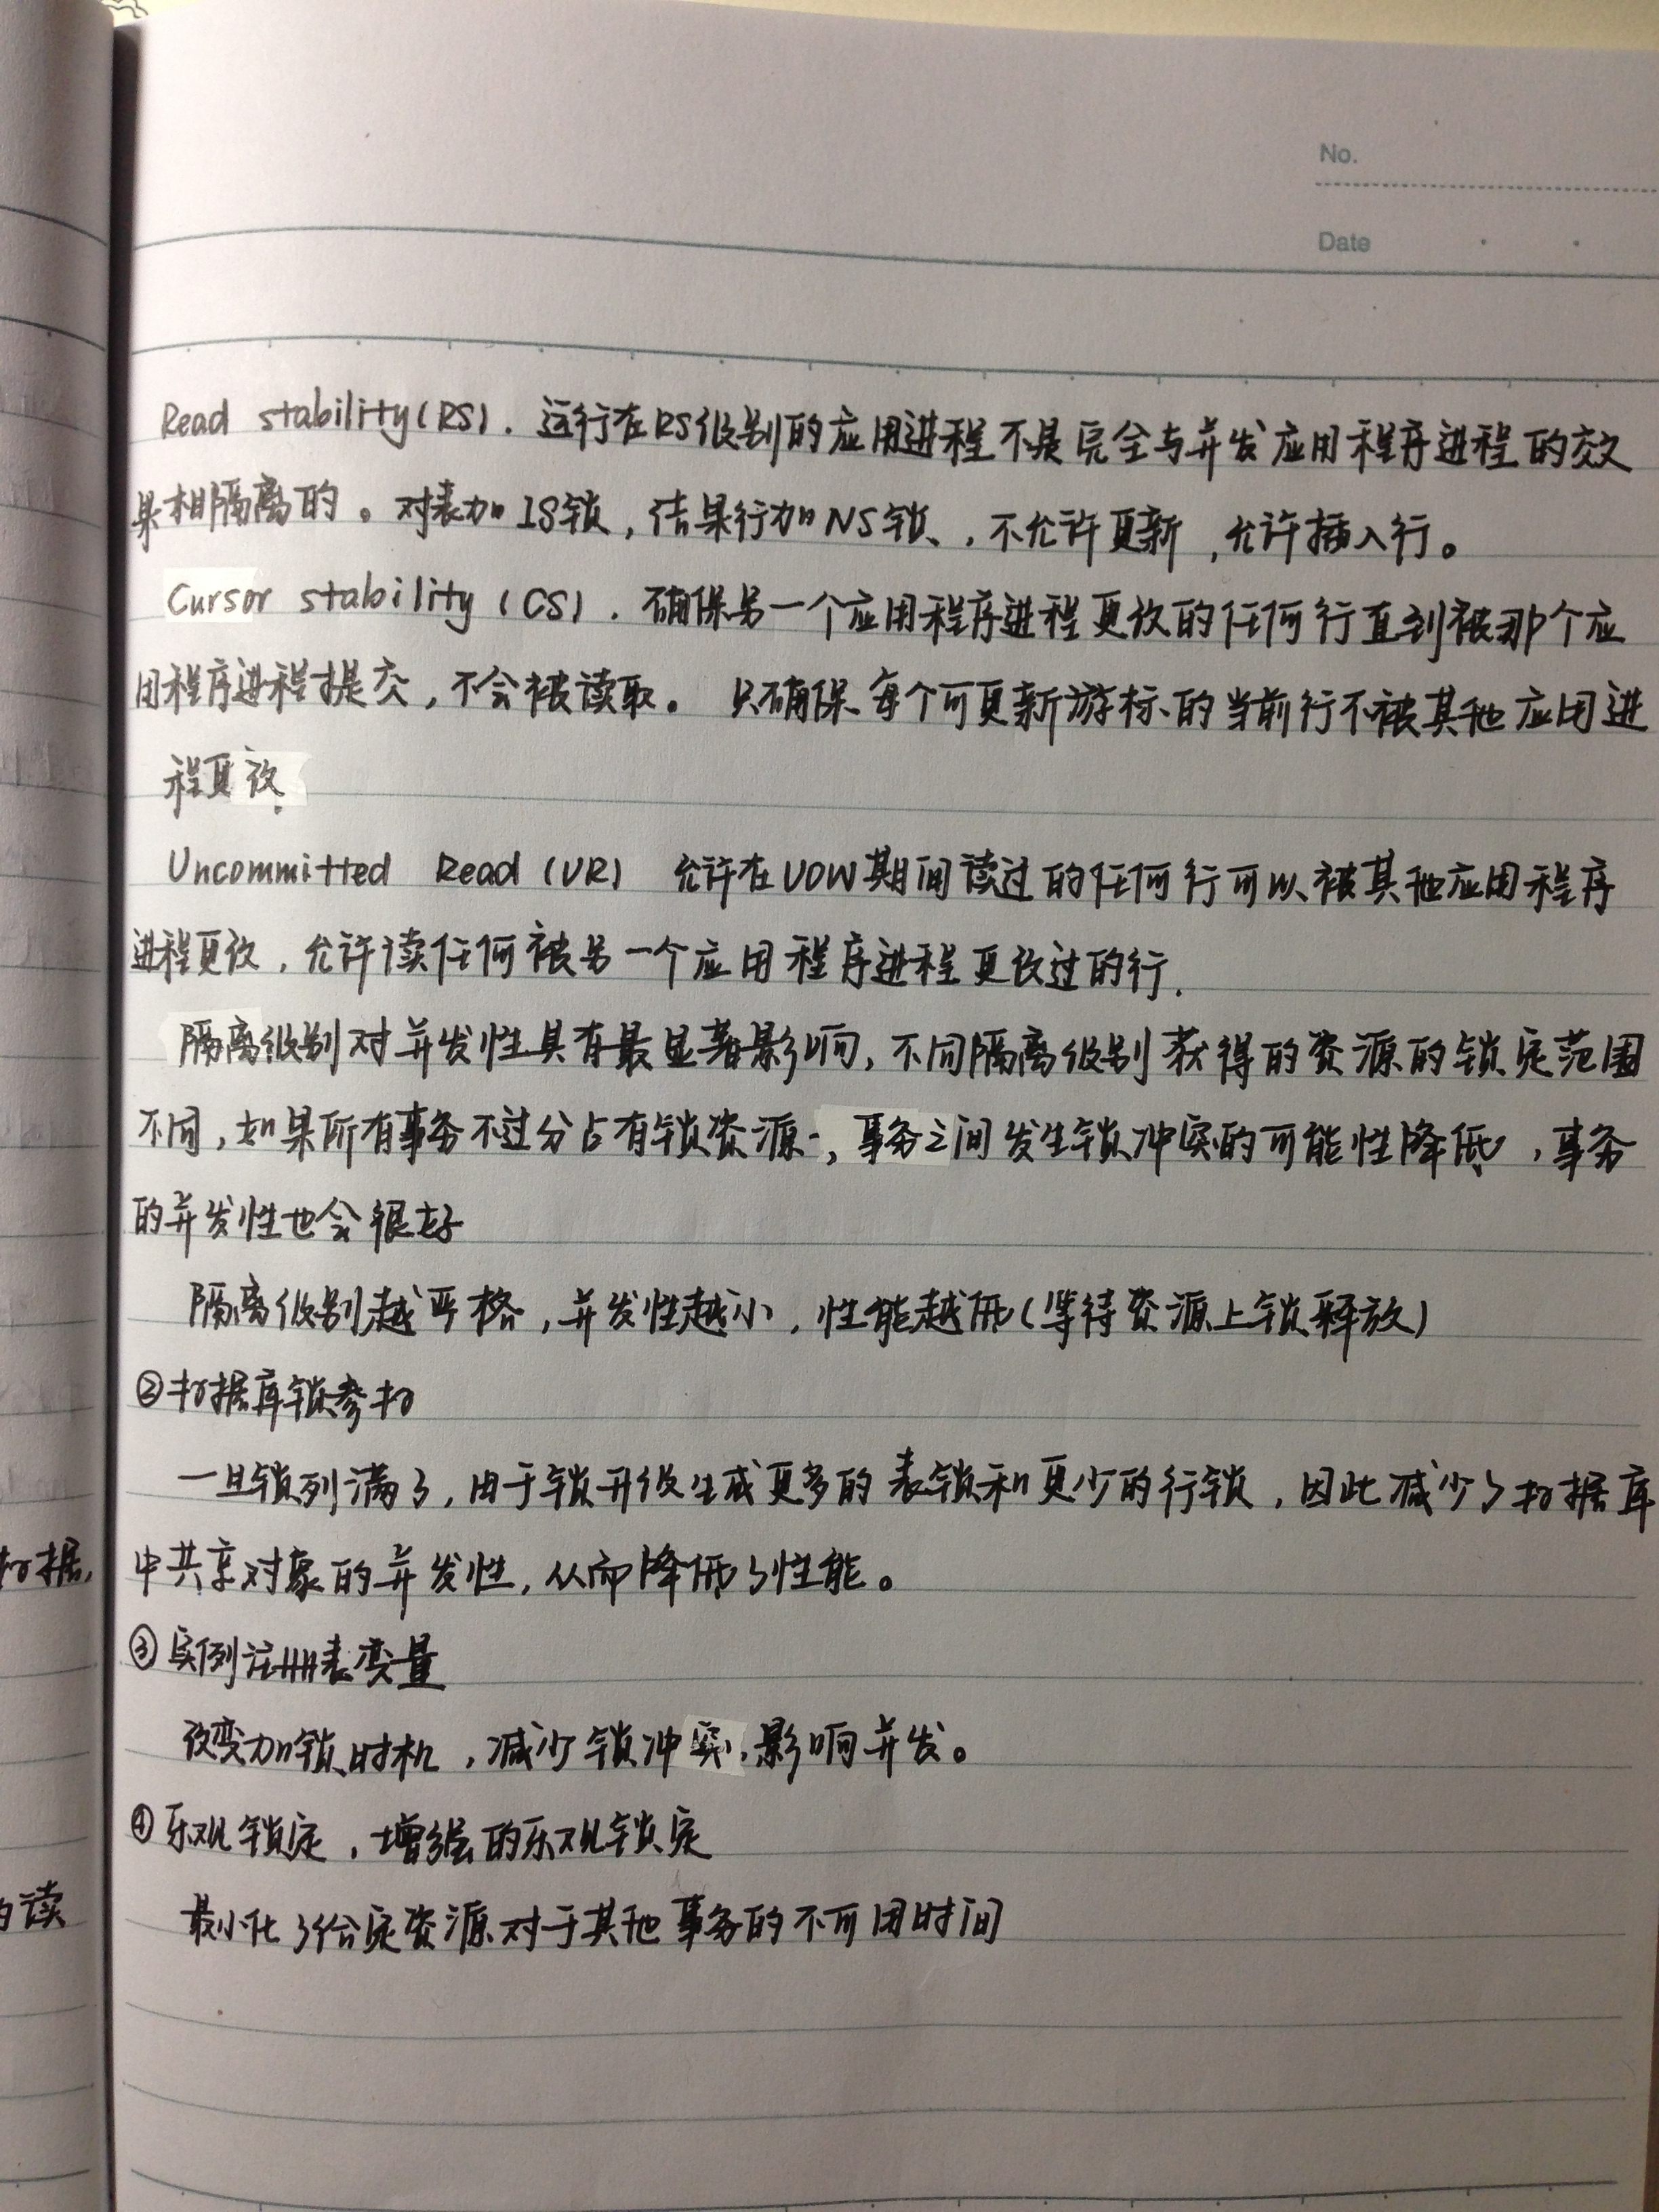 No.
Date
Read stability(RS). 运行在RS级别的应用进程不是完全与并发应用程序进程的效
果相隔离的。对表加IS锁,结果行加NS锁,不允许更新,允许插入行。
Cursor stability (CS). 确保另一个应用程序进程更改的任何行直到被那个应
用程序进程提交,不会被读取。只确保每个可更新游标的当前行不被其他应用进
程更改.
Uncommitted Read (UR) 允许在UOW期间读过的任何行可以被其他应用程序
进程更改,允许读任何被另一个应用程序进程更改过的行.
隔离级别对并发性具有最显著影响,不同隔离级别获得的资源的锁定范围
不同,如果所有事务不过分占有锁资源,事务之间发生锁冲突的可能性降低,事务
的并发性也会很好
隔离级别越严格,并发性越小,性能越低(等待资源上锁释放)
②数据库锁参数
一旦锁列满了,由于锁升级生成更多的表锁和更少的行锁,因此减少了数据库
数据,
中共享对象的并发性,从而降低了性能。
③实例注册表变量
改变加锁时机,减少锁冲突,影响并发。
④乐观锁定,增强的乐观锁定
的读
最小化了给定资源对于其他事务的不可用时间